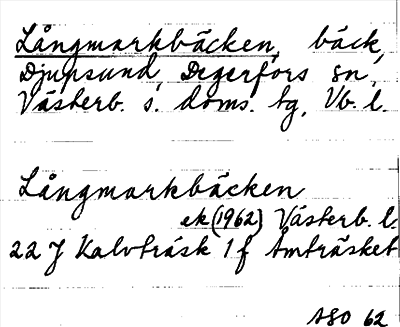 Långmarkbäcken, bäck,
Djupsund, Degerfors sn,
Västerb. s. doms. tg, Vb. l.
Långmarkbäcken
ek (1962) Västerb. l.
22 J Kalvträsk 1 f Åmträsket
ASO 62